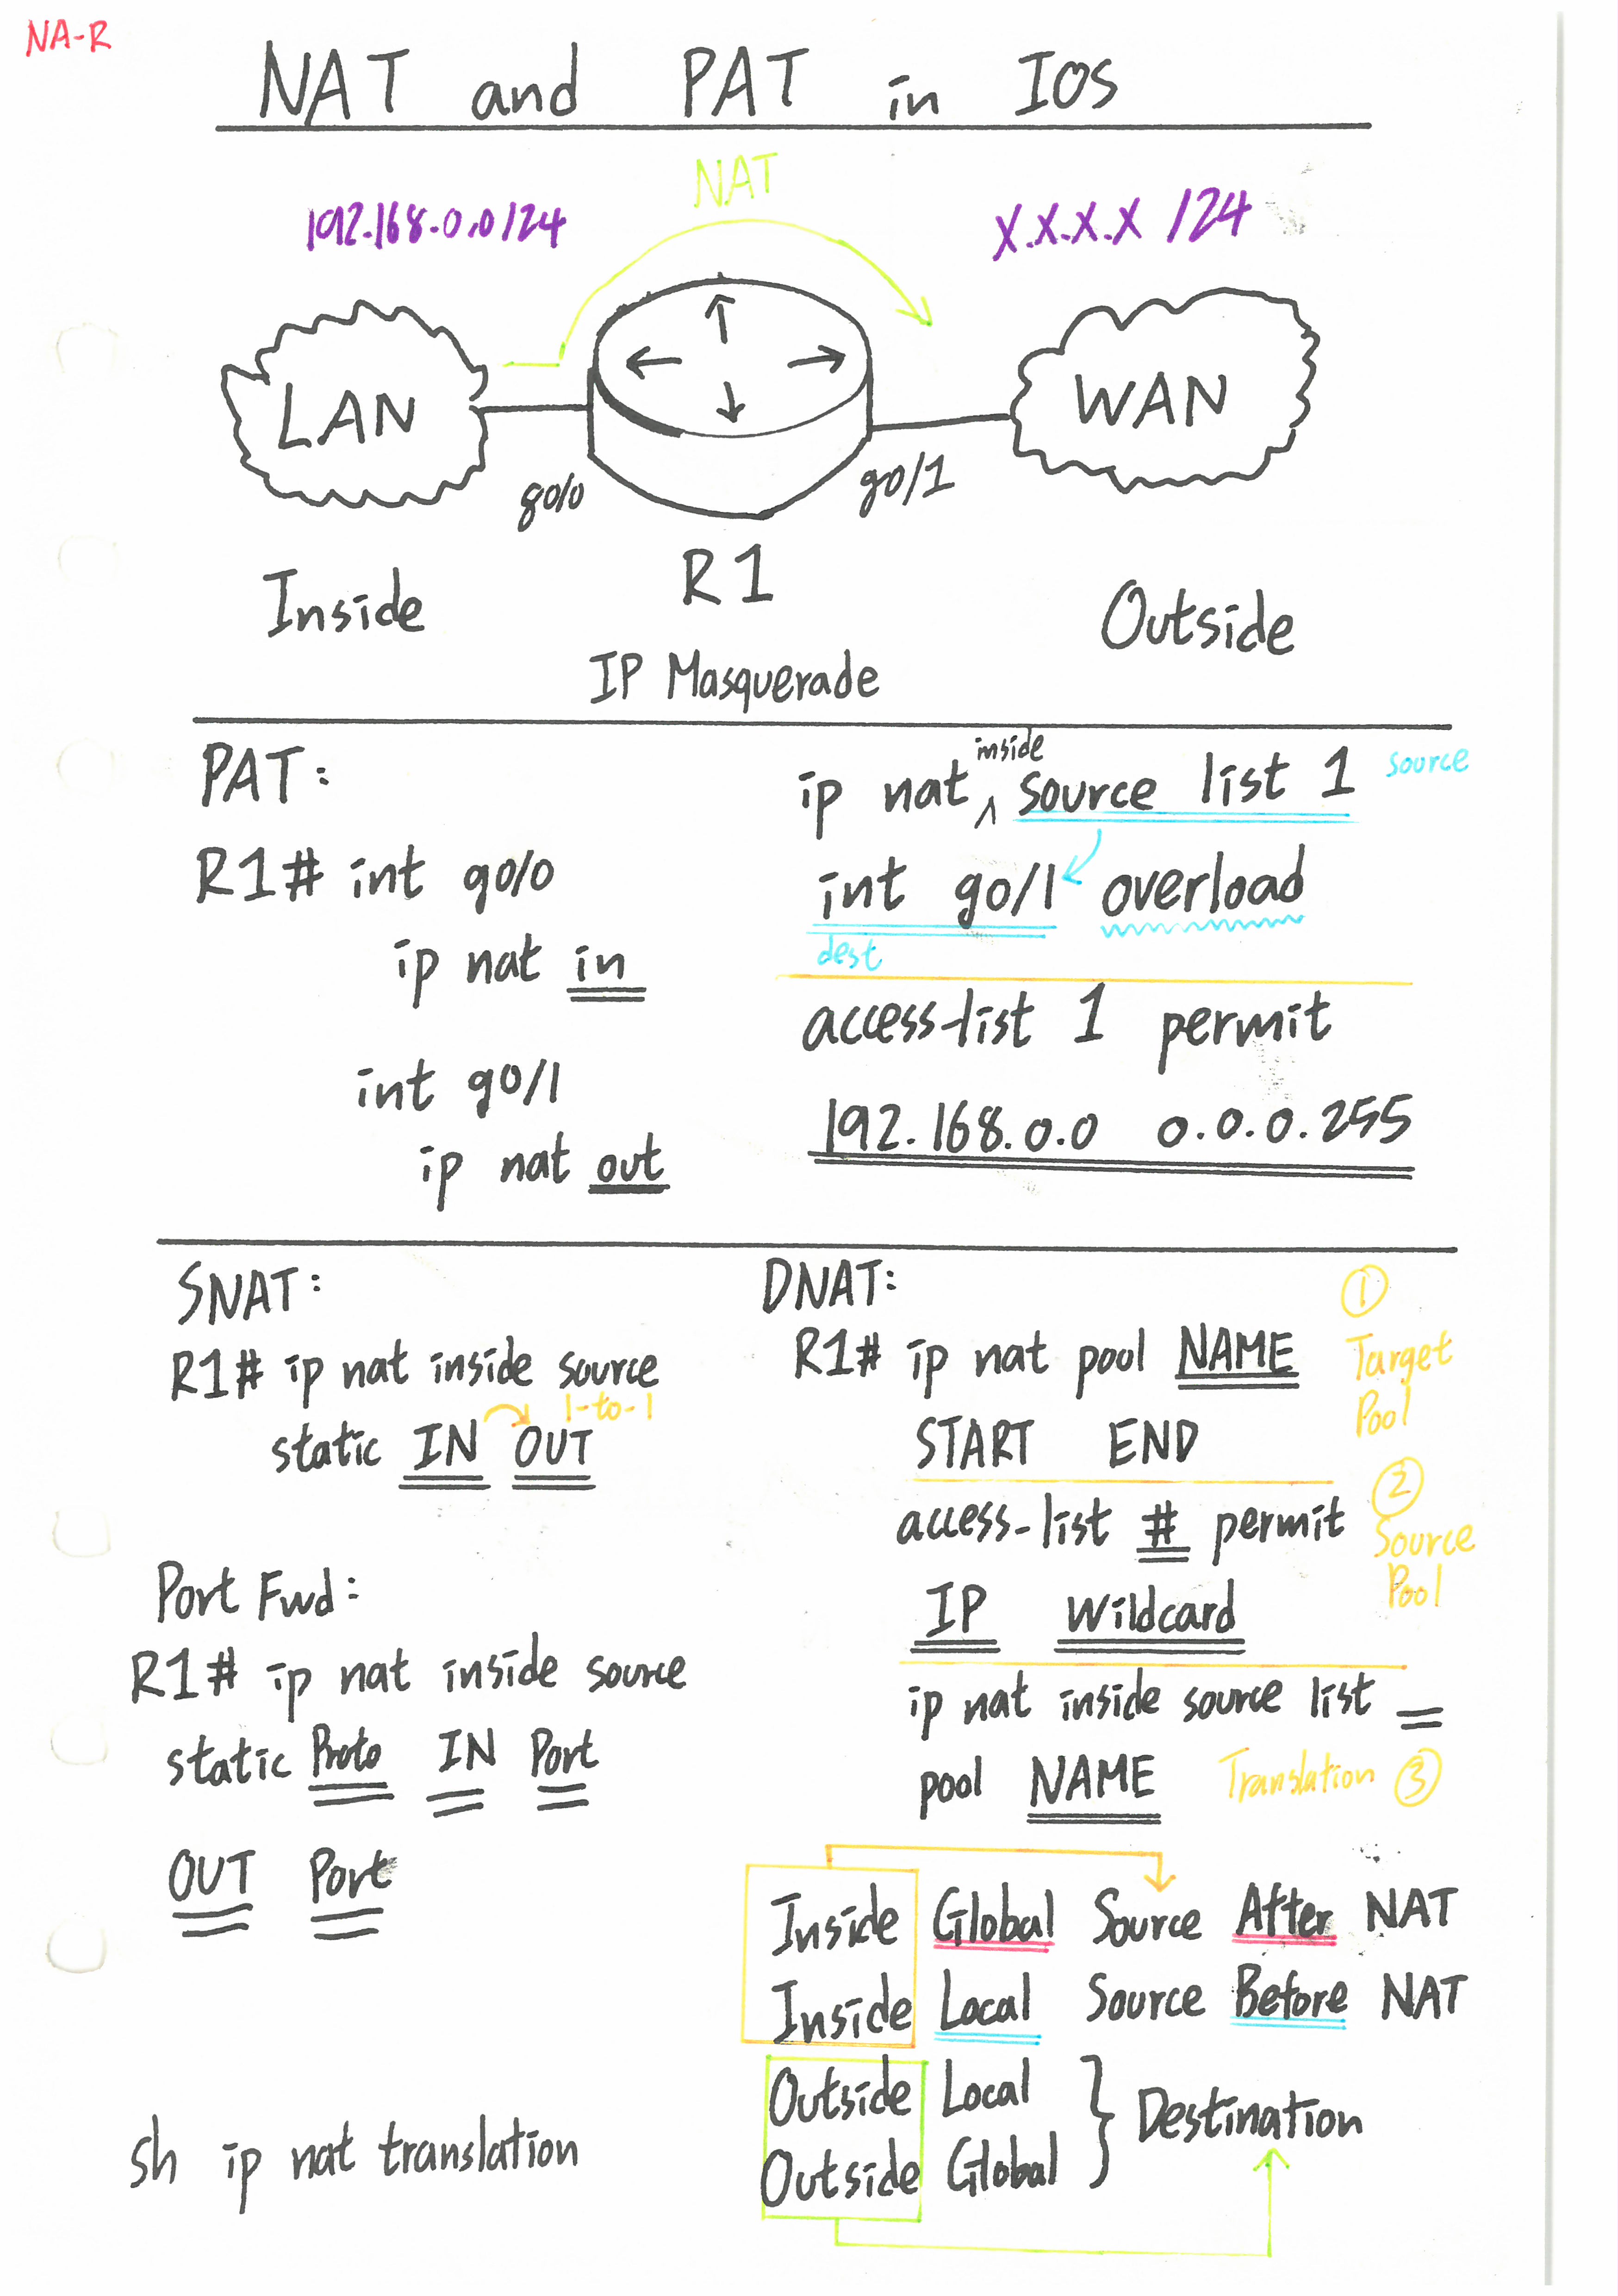 NA-R
NAT and PAT in IOS
NAT
192.168.0.0/24
X.X.X.X /24
LAN
WAN
g0/0
g0/1
R1
Inside
Outside
IP Masquerade
PAT:
R1# int g0/0
ip nat in
int g0/1
ip nat out
inside
ip nat ^ source list 1
source
int g0/1 overload
dest
access-list 1 permit
192.168.0.0 0.0.0.255
SNAT:
R1# ip nat inside source
1-to-1
static IN OUT
Port Fwd:
R1# ip nat inside source
static Proto IN Port
OUT Port
sh ip nat translation
DNAT:
R1# ip nat pool NAME
START END
① Target
Pool
access-list # permit
IP Wildcard
② Source
Pool
ip nat inside source list _
pool NAME
Translation ③
Inside Global Source After NAT
Inside Local Source Before NAT
Outside Local
Outside Global
} Destination